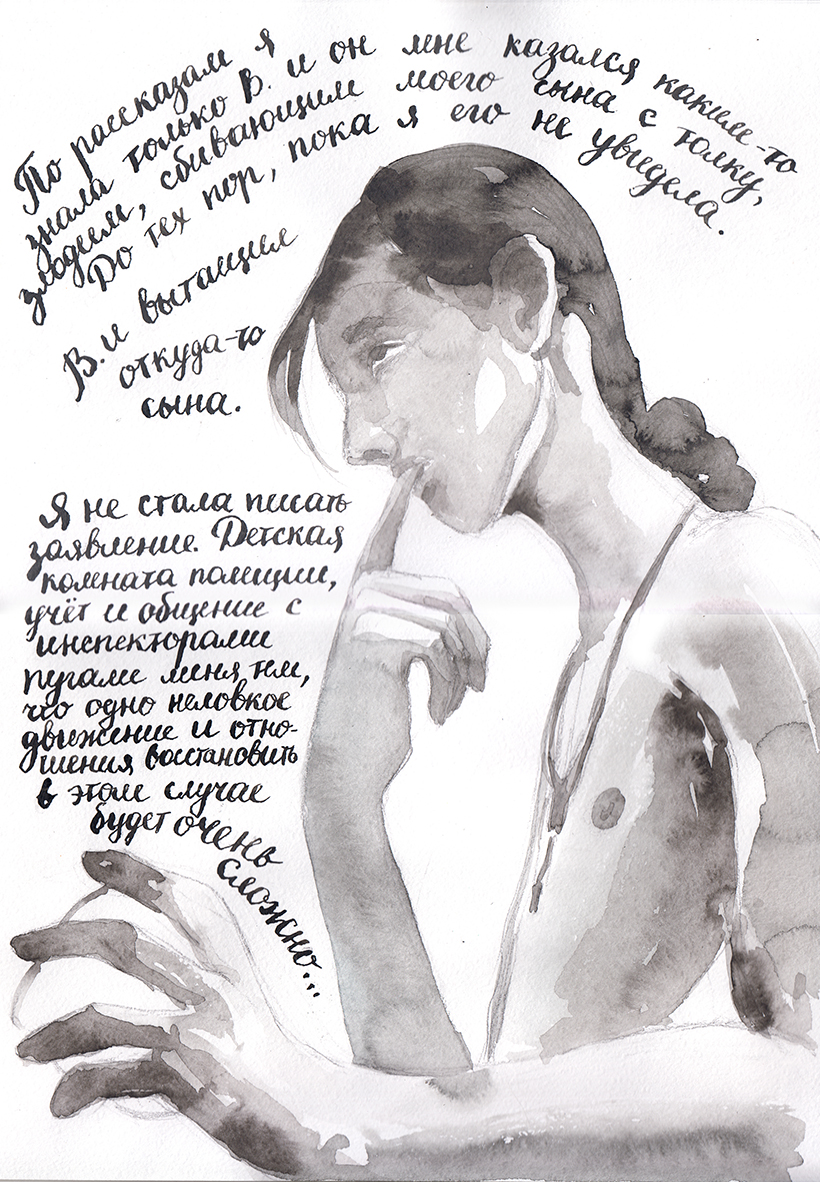 По рассказам я
знала только В. и он мне казался каким-то
злодеем, сбивающим моего сына с толку,
До тех пор, пока я его не увидела.
В. и вытащил
откуда-то
сына.
Я не стала писать
заявление. Детская
комната полиции,
учёт и общение с
инспекторами
пугали меня тем,
что одно неловкое
движение и отно-
шения восстановить
в этом случае
будет очень
сложно...